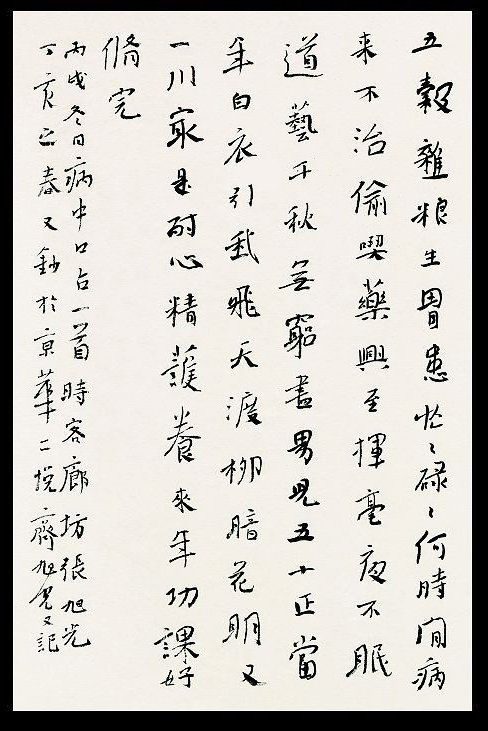 五穀雜粮生胃患忙々碌々何時閒病
来不治偷喫藥興至揮毫夜不眠
道藝千秋無窮盡男児五十正當
年白衣引我飛天渡柳暗花明又
一川寂是耐心精護養來年功課好
脩完
丙戌冬日病中口占一首時客廊坊張旭光
丁亥之春又鈔於京華二悅齋旭光又記